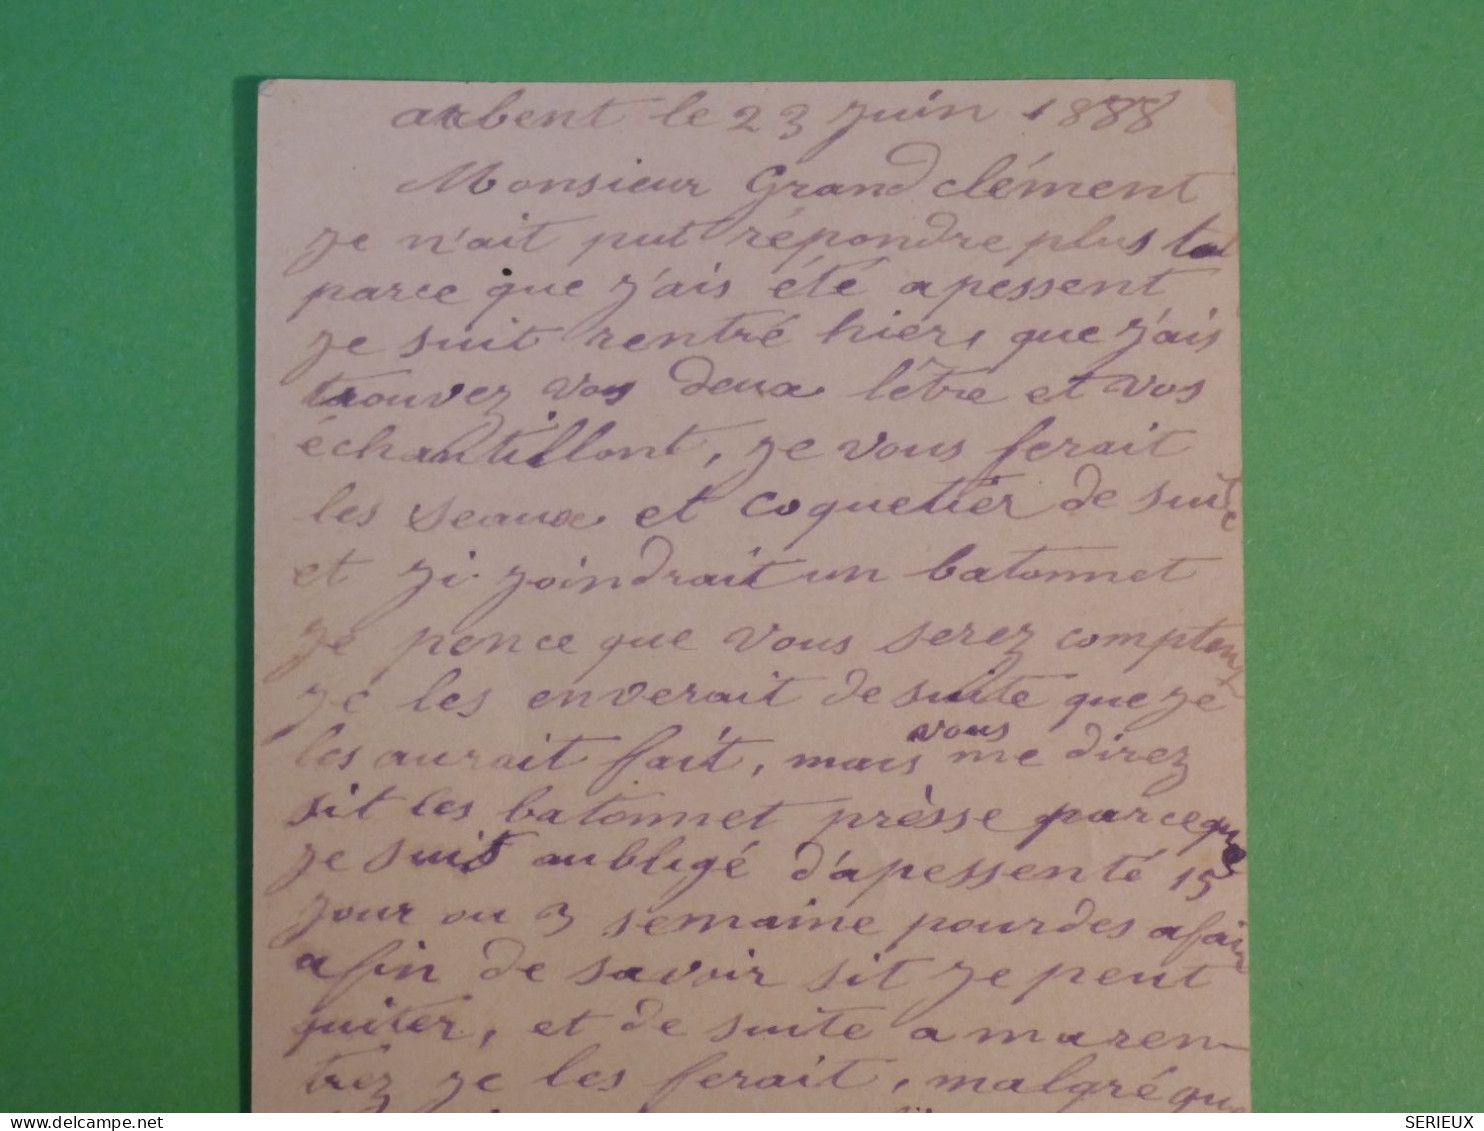 arbent le 23 juin 1888
Monsieur Grandclément
je n'ait put répondre plus tot
parce que j'ais été apessent
je suit rentré hier, que j'ais
trouvez vos deux lêtre et vos
échantillont, je vous ferait
les seaux et coquetier de suite
et ji joindrait un batonnet
je pence que vous serez compten
je les enverait de suite que je
les aurait fait, mais vous me direz
sit les batonnet prèsse parceque
je suis aubligé d'apessenté 15
jour ou 3 semaine pour des afair
afin de savoir sit je peut
quiter, et de suite a ma ren-
trez je les ferait, malgré que
delcampe.net
SERIEUX